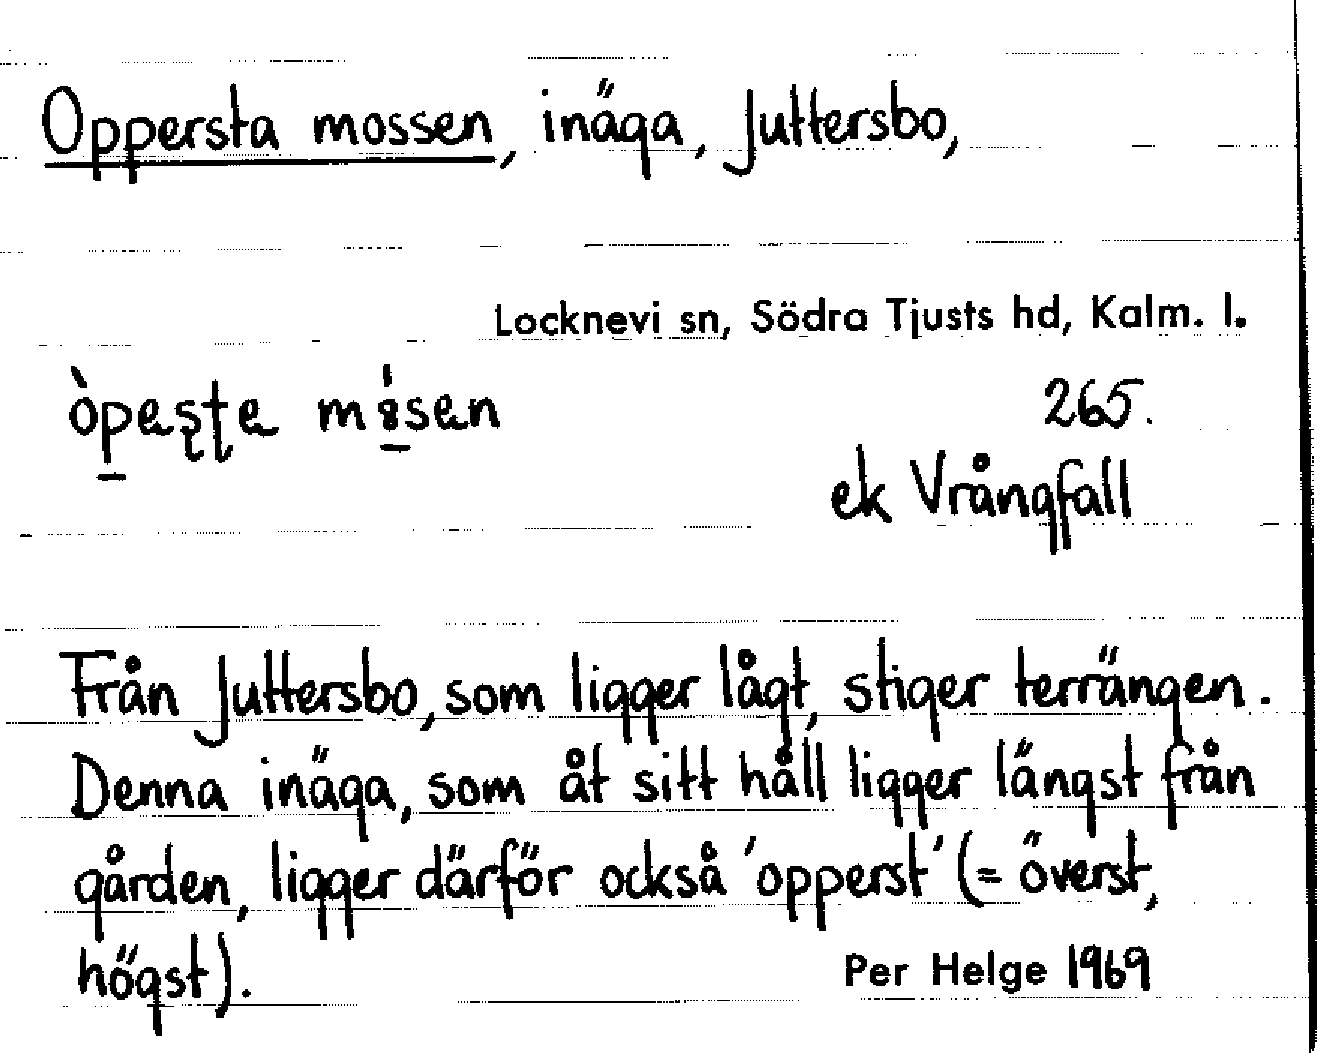 Oppersta mossen, inäga, Juttersbo,
Locknevi sn, Södra Tjusts hd, Kalm. l.
265.
ek Vrångfall
Från Juttersbo, som ligger lågt, stiger terrängen.
Denna inäga, som åt sitt håll ligger längst från
gården, ligger därför också 'opperst' (= överst,
högst).
Per Helge 1969